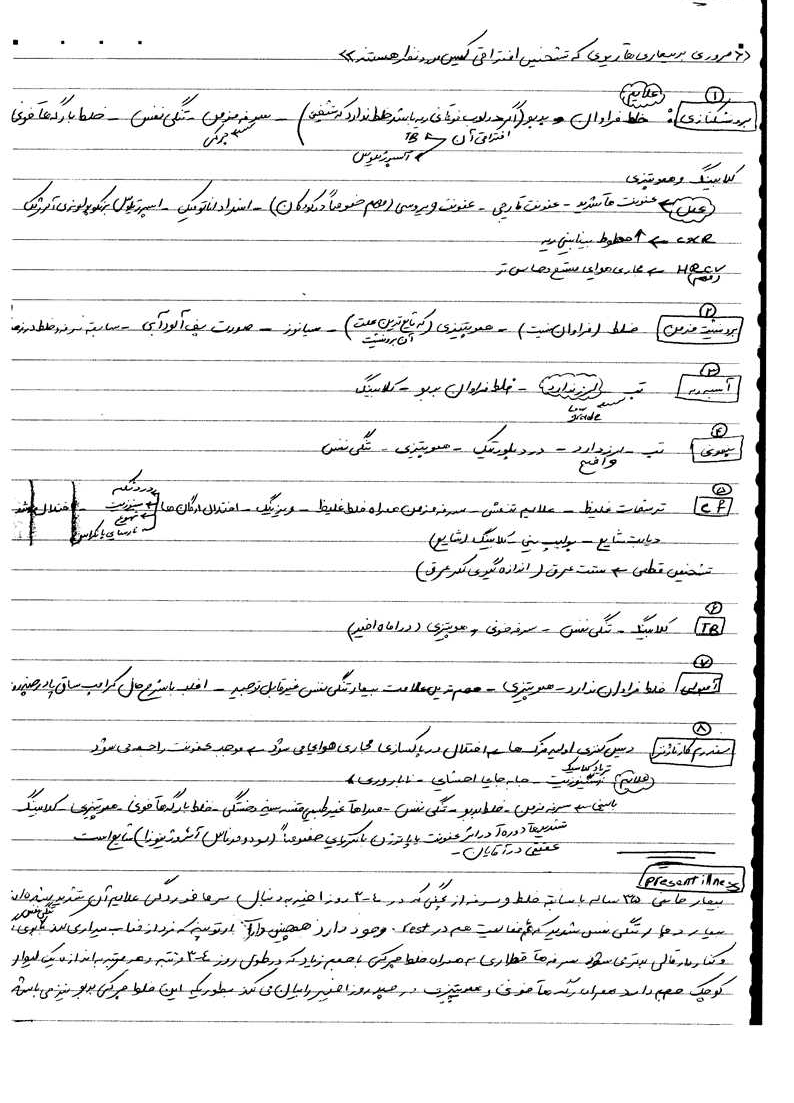 مروری بر بیماری‌های ریوی که تشخیص افتراقی کیس مورد نظر هستند
علایم
۱
برونشکتازی: خلط فراوان و بدبو (اگر در لوب فوقانی ریه باشد خلط ندارد که تشخیص - سرفه مزمن - تنگی نفس - خلط با رگه‌های خونی
افتراقی آن TB
چرکی
آسپرژیلوس
کلابینگ و هموپتیزی
علل عفونت‌های شدید - عفونت قارچی - عفونت ویروسی (مهم خصوصاً در کودکان) - انسداد اناتومیک - اسپرژیلوس برنکوپولمونری آلرژیک
CXR ← ↑ خطوط بینابینی ریه
HRCT ← مجاری هوای متسع
۲
برونشیت مزمن خلط (فراوان نیست) - هموپتیزی (که شایع‌ترین علت - سیانوز - صورت پف‌آلود آبی - سابقه سرفه و خلط در
آن برونشیت
۳
آبسه ریه تب لرز ندارد - خلط فراوان بدبو - کلابینگ
low grade
۴
پنومونی تب - لرز دارد - درد پلورتیک - هموپتیزی - تنگی نفس
واضح
۵
CF ترشحات غلیظ - علایم تنفسی - سرفه مزمن همراه خلط غلیظ - ویزینگ - اختلال ارگان‌ها - اختلال رشد
درد شکم
دیابت شایع - پولیپ بینی - کلابینگ (شایع)
تشخیص قطعی ← تست عرق (اندازه‌گیری کلر عرق)
۶
TB کلابینگ - تنگی نفس - سرفه خونی و هموپتیزی (در ماه اخیر)
۷
آمبولی خلط فراوان ندارد - هموپتیزی - مهم‌ترین علامت بیمار تنگی نفس غیرقابل توجیه - اغلب با شرح حالی کرامپ ساق پا
۸
سندرم کارتاژنر دیس‌کنزی اولیه مژک‌ها ← اختلال در پاکسازی مجاری هوایی می‌شود ← موجب عفونت راجعه می‌شود
تریاد کلاسیک
علایم سینوزیت - جابه‌جایی احشایی - ناباروری
بالینی ← سرفه مزمن - خلط بدبو - تنگی نفس - صداهای غیرطبیعی قفسه سینه - خستگی - خلط با رگه‌های خونی - هموپتیزی - کلابینگ
تشدیدهای دوره‌ای در اثر عفونت با پاتوژن باکتریایی خصوصاً (سودوموناس آئروژینوزا) شایع است
عقیمی در آقایان -
present illness
بیمار خانمی ۳۵ ساله با سابقه خلط و سرفه از بچگی که در ۴-۳ روز اخیر به دنبال سرماخوردگی علایم آن تشدید
بیمار دچار تنگی نفس شدید که هم فعالیت هم در rest وجود دارد همچنین دارای ارتوپنه که نیز از خواب بیدار
سرفه‌های قطاری به همراه خلط چرکی با حجم زیاد که در طول روز ۴-۳ دفعه و هر دفعه به اندازه یک لیوان
کوچک حجم دارد همراه رگه‌های خونی و هموپتیزی در چند روز اخیر را بیان می‌کند بطوریکه این خلط چرکی بدبو نیز می‌باشد